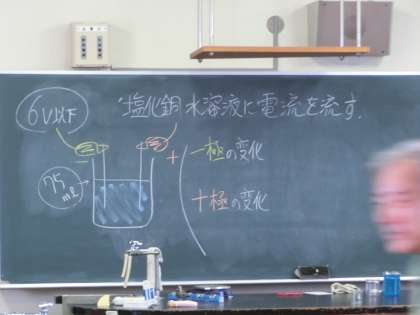 6V以下
塩化銅水溶液に電流を流す.
−
+
75
ml
一極の変化
十極の変化